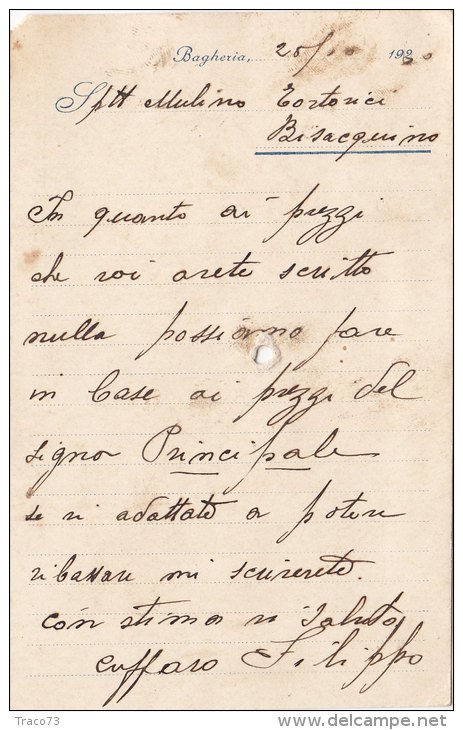 Bagheria, 20/10 1930
Sptt Mulino Tortorici
Bisacquino
In quanto ai prezzi
che voi avete scritto
nulla possiamo fare
in base ai prezzi del
signor Principale
se vi adattate a potere
ribassare mi scriverete.
con stima vi saluto
Cuffaro Filippo
Traco73
delcampe.net